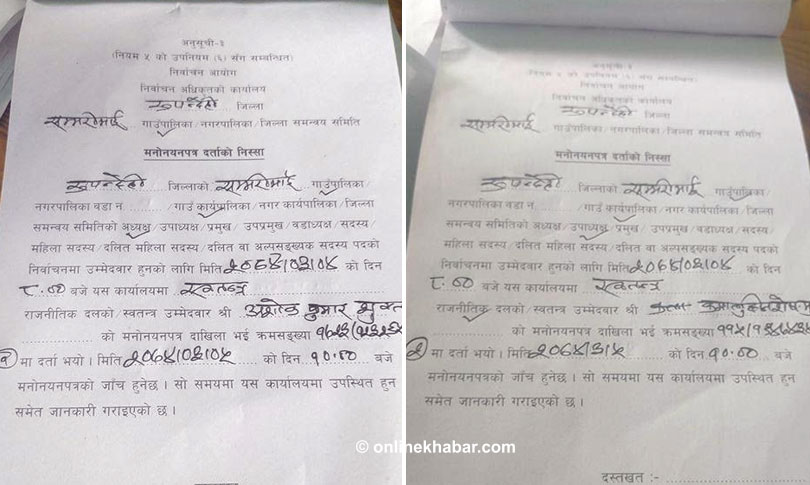 अनुसूची-३
(नियम ५ को उपनियम (६) संग सम्बन्धित)
निर्वाचन आयोग
निर्वाचन अधिकृतको कार्यालय
रूपन्देही जिल्ला
सम्मरीमाई गाउँपालिका/नगरपालिका/जिल्ला समन्वय समिति
मनोनयनपत्र दर्ताको निस्सा
रूपन्देही जिल्लाको सम्मरीमाई गाउँपालिका/
नगरपालिका वडा नं ......../गाउँ कार्यपालिका/नगर कार्यपालिका/जिल्ला
समन्वय समितिको अध्यक्ष/उपाध्यक्ष/प्रमुख/उपप्रमुख/वडाध्यक्ष/सदस्य/
महिला सदस्य/दलित महिला सदस्य/दलित वा अल्पसङ्ख्यक सदस्य पदको
निर्वाचनमा उम्मेदवार हुनको लागि मिति २०७४/०३/०४ को दिन
८.०० बजे यस कार्यालयमा स्वतन्त्र
राजनीतिक दलको/स्वतन्त्र उम्मेदवार श्री अशोक कुमार शुक्ल
को मनोनयनपत्र दाखिला भई क्रमसङ्ख्या
मा दर्ता भयो । मिति २०७४/०३/०५ को दिन १०.०० बजे
मनोनयनपत्रको जाँच हुनेछ । सो समयमा यस कार्यालयमा उपस्थित हुन
समेत जानकारी गराइएको छ ।
अनुसूची-३
(नियम ५ को उपनियम (६) संग सम्बन्धित)
निर्वाचन आयोग
निर्वाचन अधिकृतको कार्यालय
रूपन्देही जिल्ला
सम्मरीमाई गाउँपालिका/नगरपालिका/जिल्ला समन्वय समिति
मनोनयनपत्र दर्ताको निस्सा
रूपन्देही जिल्लाको सम्मरीमाई गाउँपालिका/
नगरपालिका वडा नं ......../गाउँ कार्यपालिका/नगर कार्यपालिका/जिल्ला
समन्वय समितिको अध्यक्ष/उपाध्यक्ष/प्रमुख/उपप्रमुख/वडाध्यक्ष/सदस्य/
महिला सदस्य/दलित महिला सदस्य/दलित वा अल्पसङ्ख्यक सदस्य पदको
निर्वाचनमा उम्मेदवार हुनको लागि मिति २०७४/०३/०४ को दिन
८.०० बजे यस कार्यालयमा स्वतन्त्र
राजनीतिक दलको/स्वतन्त्र उम्मेदवार श्री
को मनोनयनपत्र दाखिला भई क्रमसङ्ख्या
मा दर्ता भयो । मिति २०७४/३/५ को दिन १०.०० बजे
मनोनयनपत्रको जाँच हुनेछ । सो समयमा यस कार्यालयमा उपस्थित हुन
समेत जानकारी गराइएको छ ।
दस्तखत :-
© onlinekhabar.com